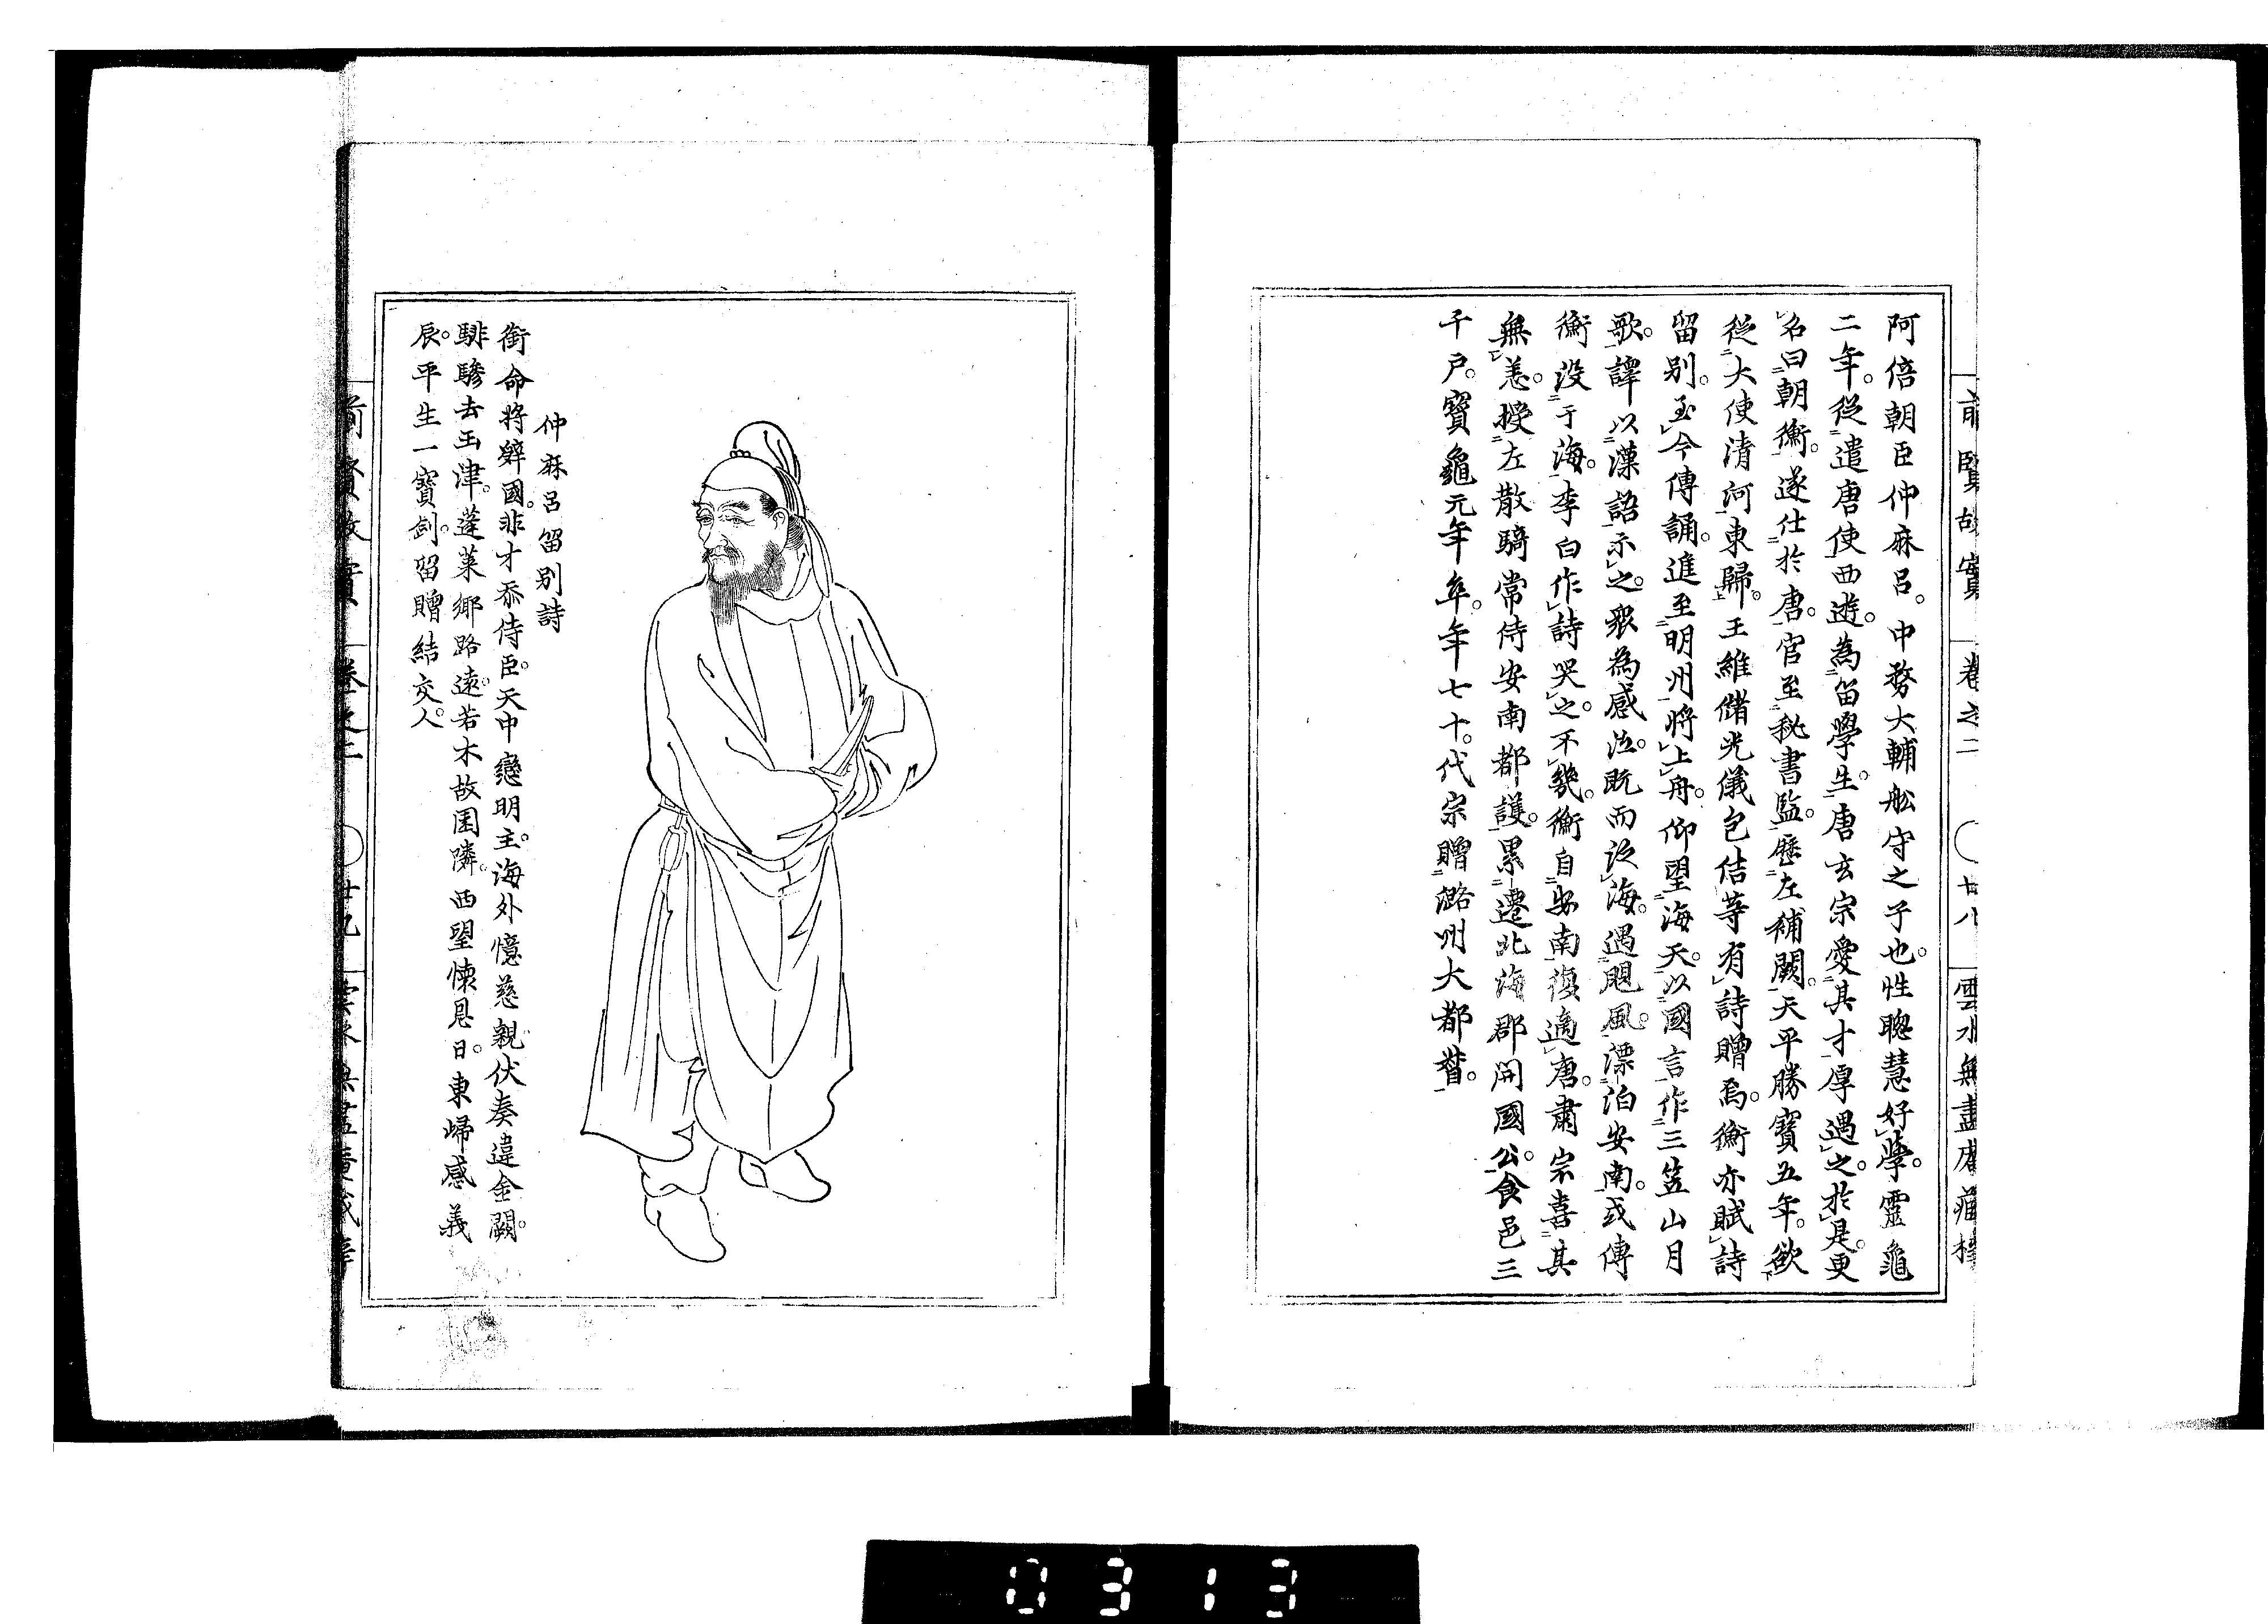 前賢故實 卷之二 〇 廿八 雲水無盡庵藏梓
阿倍朝臣仲麻呂。中務大輔舩守之子也。性聰慧好學。靈龜
二年。從遣唐使西遊。為留學生。唐玄宗愛其才厚遇之。於是更
名曰朝衡。遂仕於唐。官至秘書監。歷左補闕。天平勝寶五年。欲
從大使清河東歸。王維儲光儀包佶等有詩贈焉。衡亦賦詩
留別。至今傳誦。進至明州將上舟。仰望海天。以國言作三笠山月
歌。譯以漢語示之。衆為感泣。既而泛海。遇颶風。漂泊安南。或傳
衡没于海。李白作詩哭之。不幾。衡自安南復適唐。肅宗喜其
無恙。授左散騎常侍安南都護。累遷北海郡開國公。食邑三
千戶。寶龜元年卒。年七十。代宗贈潞州大都督。
仲麻呂留別詩
銜命將辭國。非才忝侍臣。天中戀明主。海外憶慈親。伏奏違金闕。
騑驂去玉津。蓬萊鄉路遠。若木故園隣。西望懷恩日。東歸感義
辰。平生一寶劍。留贈結交人。
前賢故實 卷之二 〇 廿九 雲水無盡庵藏梓
0313